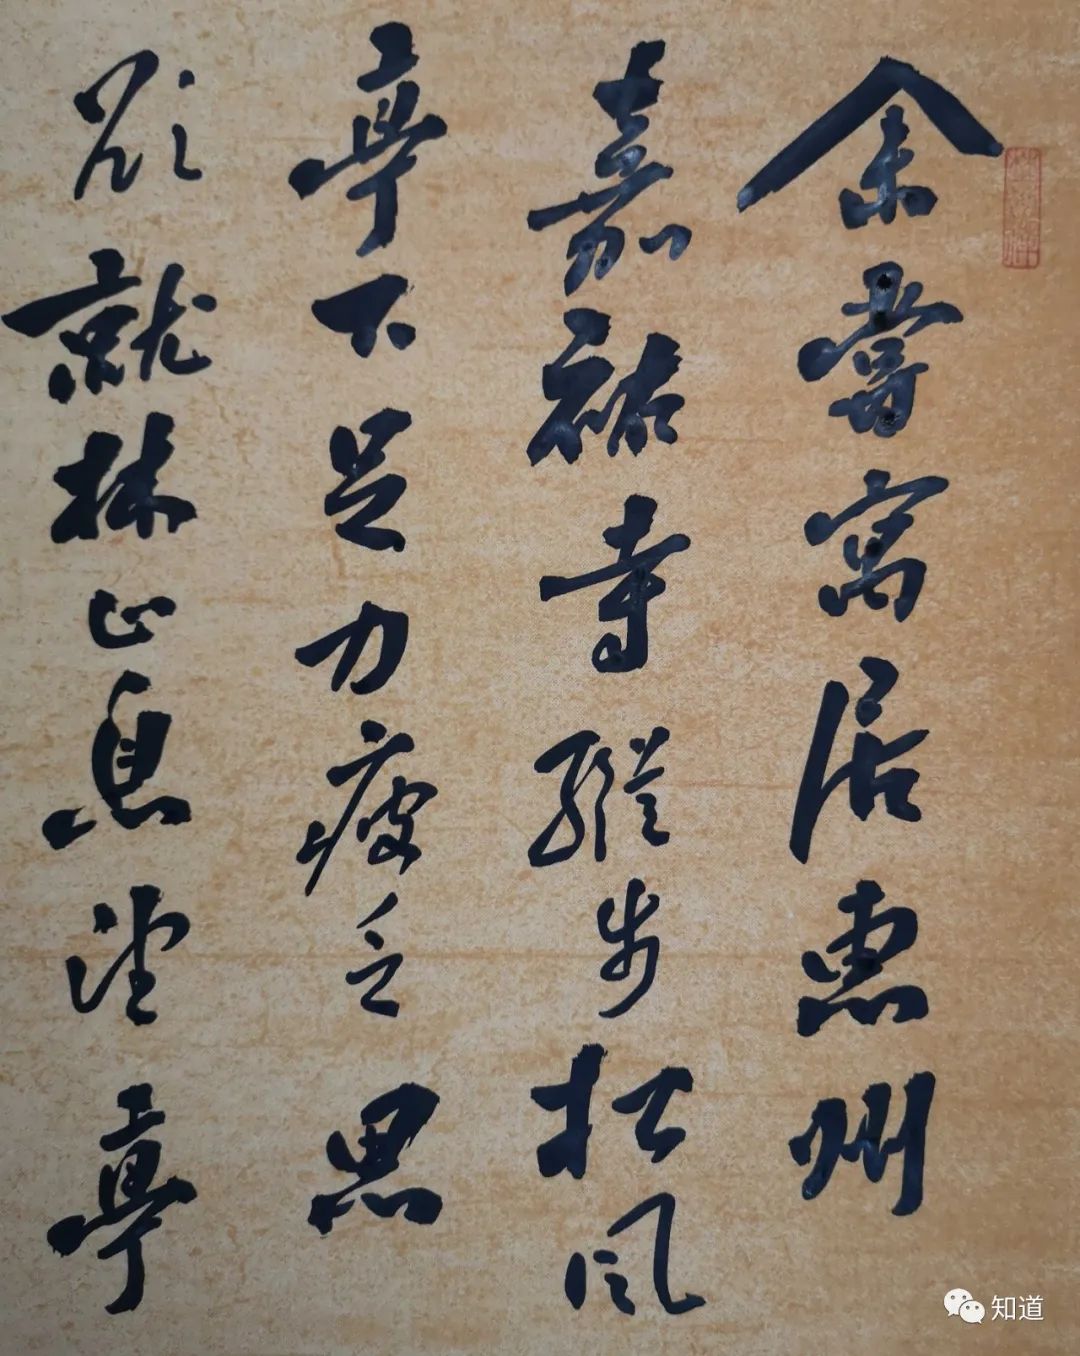 余嘗寓居惠州
嘉祐寺縱步松风
亭下足力疲乏思
欲就林止息望亭
知道